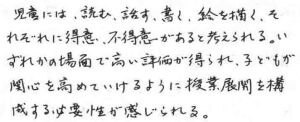 児童には、読む、話す、書く、絵を描く、そ
れぞれに得意、不得意があると考えられる。い
ずれかの場面で高い評価が得られ、子どもが
関心を高めていけるように授業展開を構
成する必要性が感じられる。